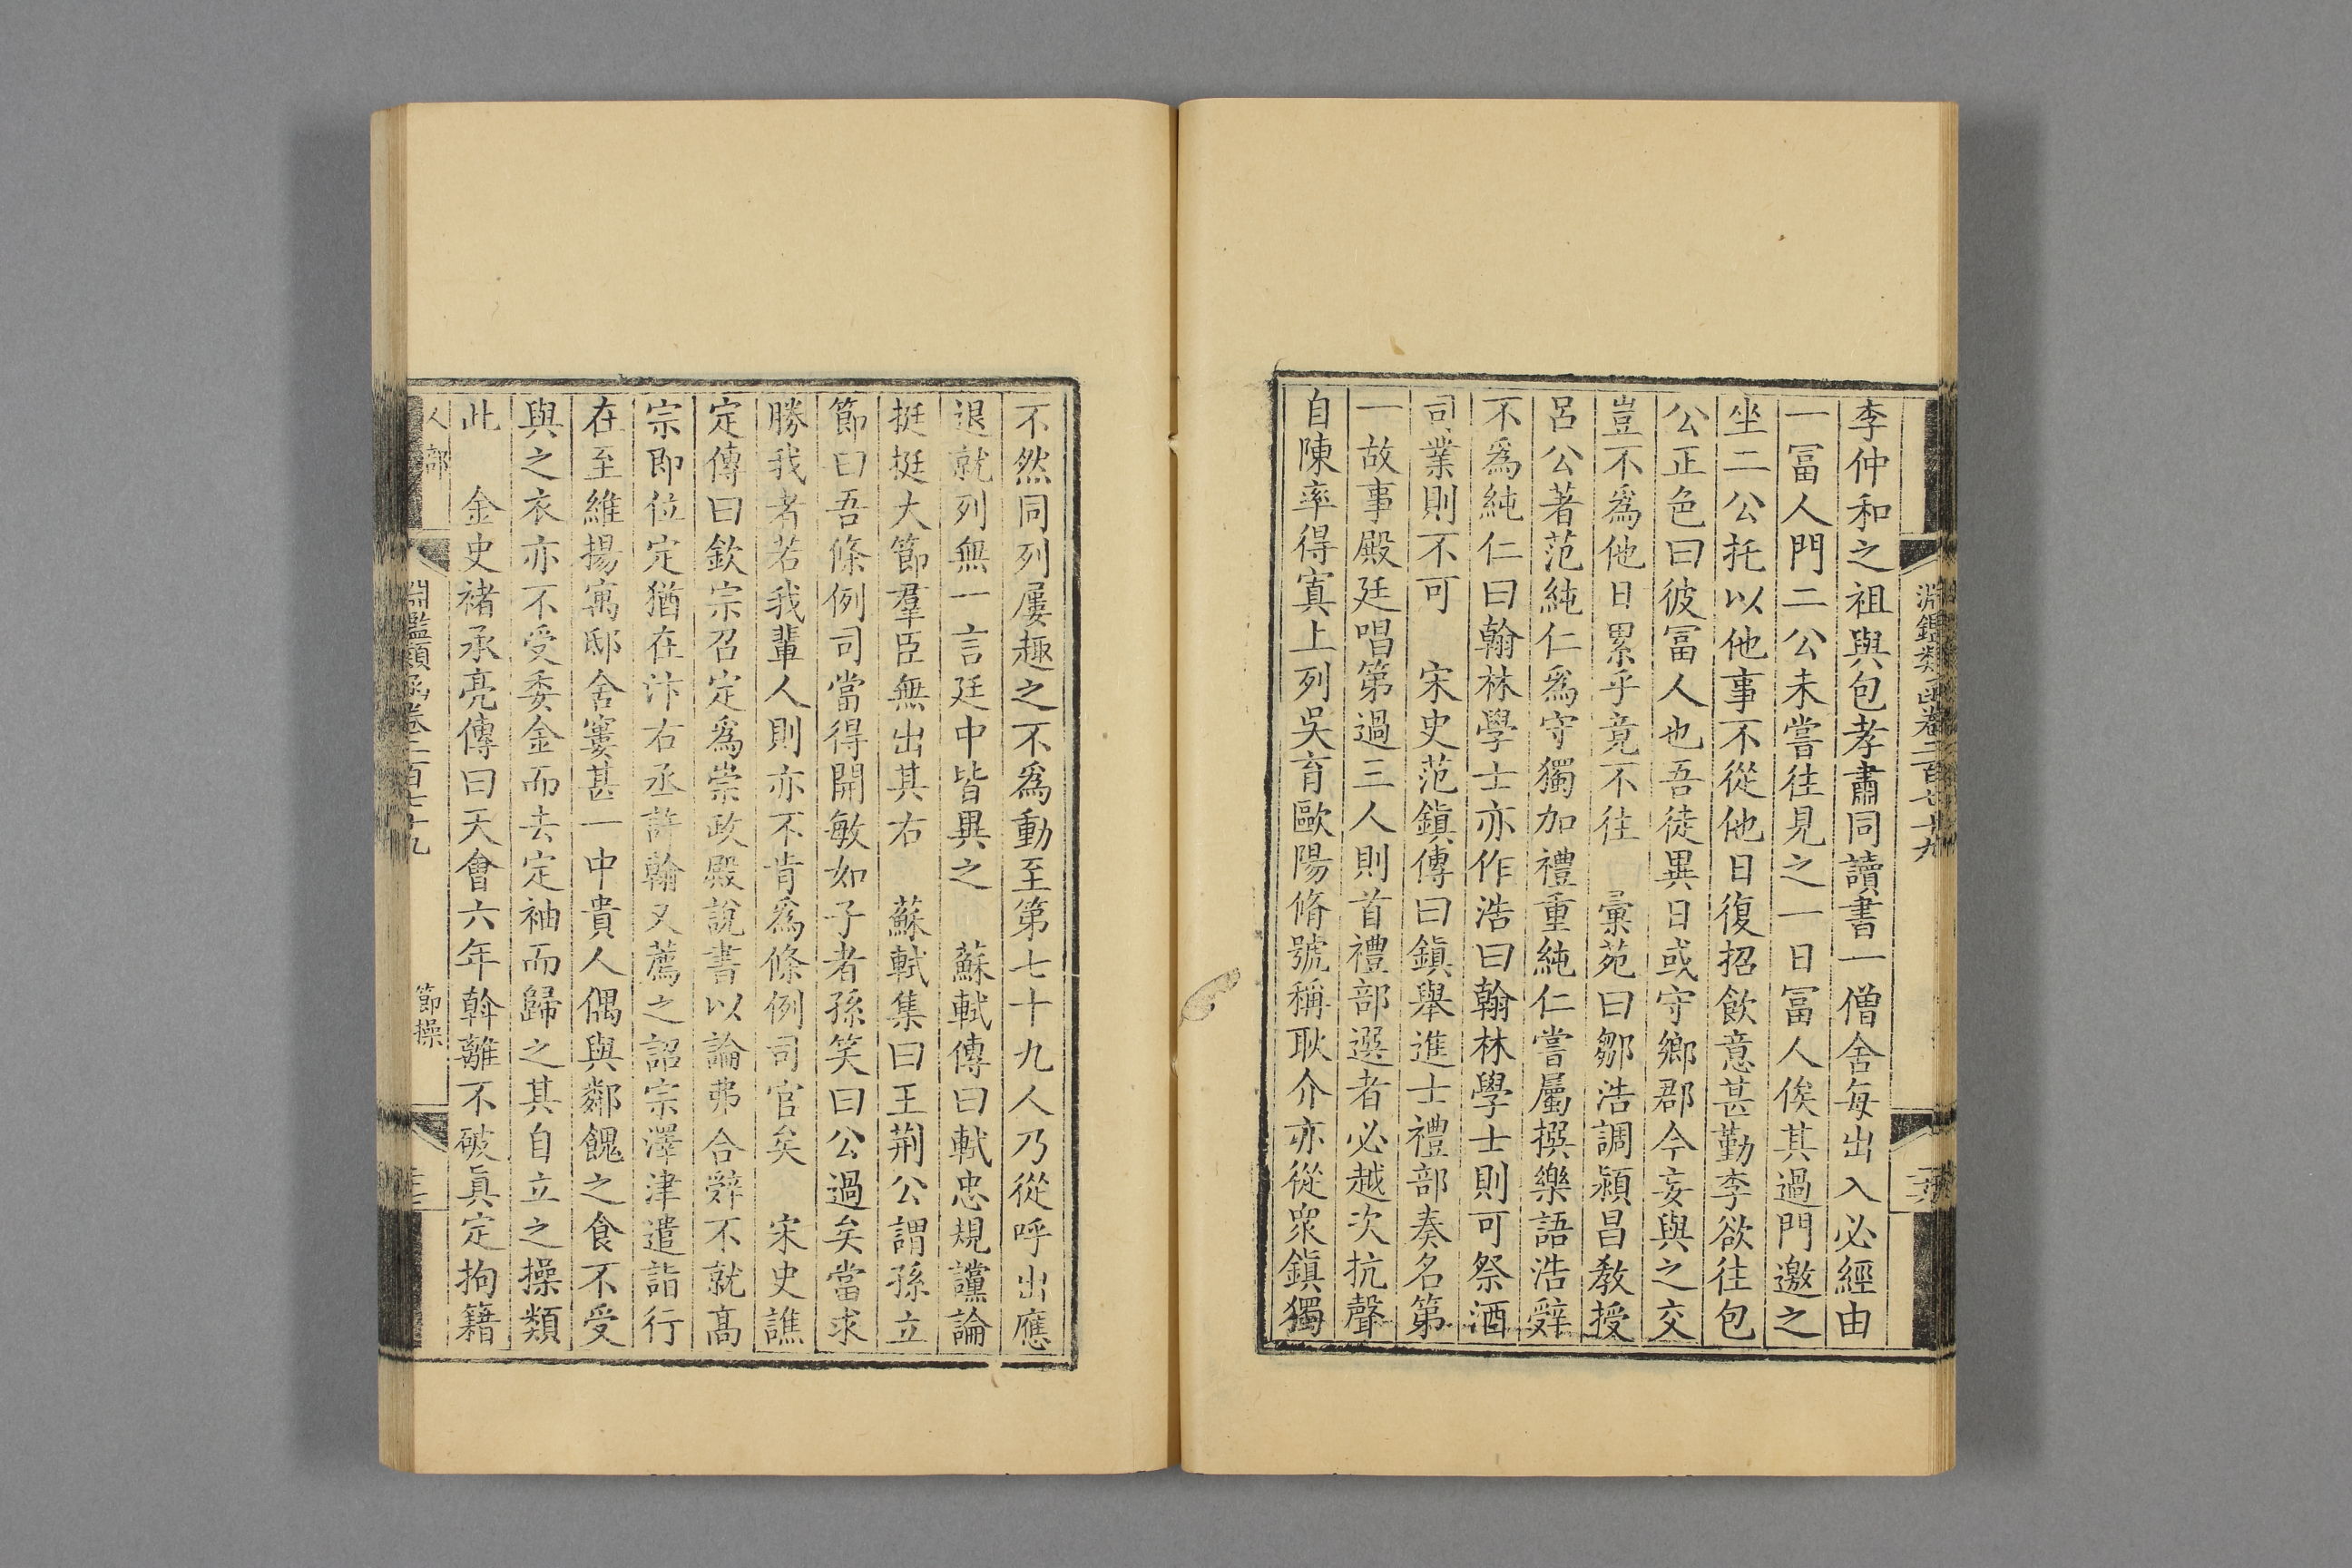 李仲和之祖與包孝肅同讀書一僧舍每出入必經由
一冨人門二公未嘗往見之一日冨人俟其過門邀之
坐二公托以他事不從他日復招飲意甚勤李欲往包
公正色曰彼冨人也吾徒異日或守鄉郡今妄與之交
豈不爲他日累乎竟不往　彚苑曰鄒浩調潁昌教授
呂公著范純仁爲守獨加禮重純仁嘗屬撰樂語浩辭
不爲純仁曰翰林學士亦作浩曰翰林學士則可祭酒
司業則不可　宋史范鎭傳曰鎭舉進士禮部奏名第
一故事殿廷唱第過三人則首禮部選者必越次抗聲
自陳率得寘上列吳育歐陽脩號稱耿介亦從衆鎭獨
不然同列屢趣之不爲動至第七十九人乃從呼出應
退就列無一言廷中皆異之　蘇軾傳曰軾忠規讜論
挺挺大節羣臣無出其右　蘇軾集曰王荆公謂孫立
節曰吾條例司當得開敏如子者孫笑曰公過矣當求
勝我者若我輩人則亦不肯爲條例司官矣　宋史譙
定傳曰欽宗召定爲崇政殿說書以論弗合辭不就髙
宗即位定猶在汴右丞許翰又薦之詔宗澤津遣詣行
在至維揚寓邸舍窶甚一中貴人偶與鄰餽之食不受
與之衣亦不受委金而去定袖而歸之其自立之操類
此　金史褚承亮傳曰天會六年斡離不破眞定拘籍
人部
淵鑑類函卷二百七十九
節操
淵鑑類函卷二百七十九